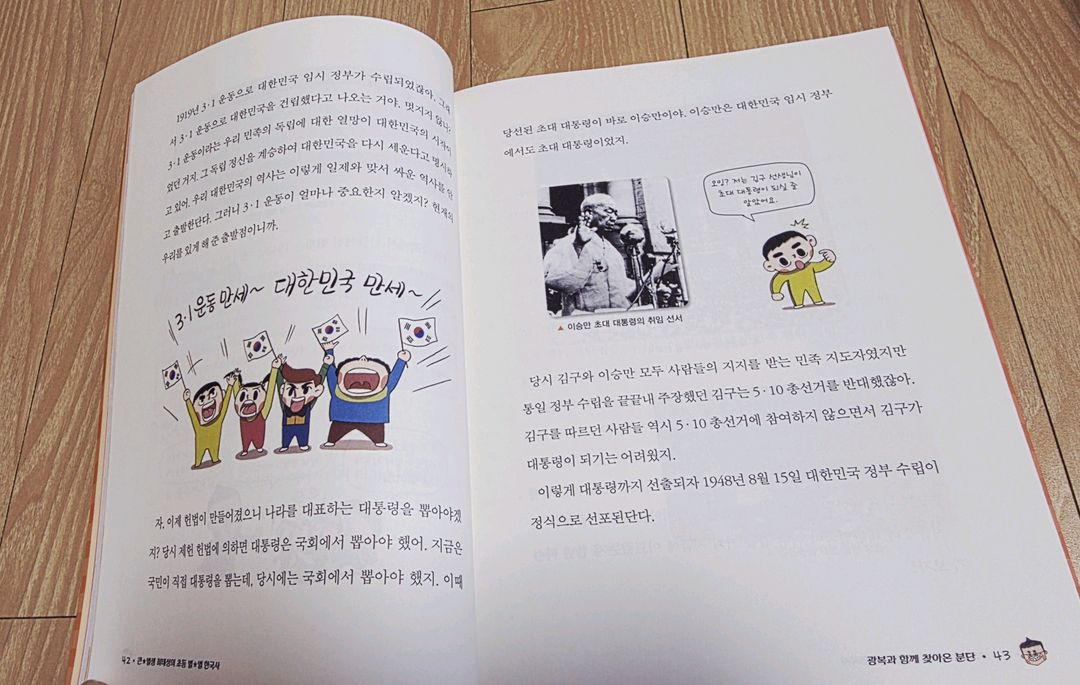 1919년 3·1 운동으로 대한민국 임시 정부가 수립되었잖아. 그래
서 3·1 운동으로 대한민국을 건립했다고 나오는 거야. 멋지지 않니?
3·1 운동이라는 우리 민족의 독립에 대한 열망이 대한민국의 시작이
었던 거지. 그 독립 정신을 계승하여 대한민국을 다시 세운다고 명시하
고 있어. 우리 대한민국의 역사는 이렇게 일제와 맞서 싸운 역사를 안
고 출발한단다. 그러니 3·1 운동이 얼마나 중요한지 알겠지? 현재의
우리를 있게 해 준 출발점이니까.
3·1 운동 만세~ 대한민국 만세~
자, 이제 헌법이 만들어졌으니 나라를 대표하는 대통령을 뽑아야겠
지? 당시 제헌 헌법에 의하면 대통령은 국회에서 뽑아야 했어. 지금은
국민이 직접 대통령을 뽑는데, 당시에는 국회에서 뽑아야 했지. 이때
42 • 큰★별쌤 최태성의 초등 별★별 한국사
당선된 초대 대통령이 바로 이승만이야. 이승만은 대한민국 임시 정부
에서도 초대 대통령이었지.
오잉? 저는 김구 선생님이
초대 대통령이 되실 줄
알았어요.
▲ 이승만 초대 대통령의 취임 선서
당시 김구와 이승만 모두 사람들의 지지를 받는 민족 지도자였지만
통일 정부 수립을 끝끝내 주장했던 김구는 5·10 총선거를 반대했잖아.
김구를 따르던 사람들 역시 5·10 총선거에 참여하지 않으면서 김구가
대통령이 되기는 어려웠지.
이렇게 대통령까지 선출되자 1948년 8월 15일 대한민국 정부 수립이
정식으로 선포된단다.
광복과 함께 찾아온 분단 • 43